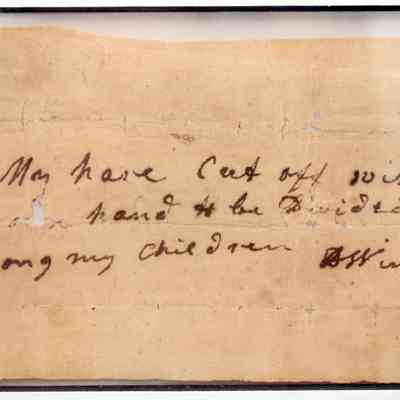 My hare Cut off wi
own hand to be Divided
ong my Children